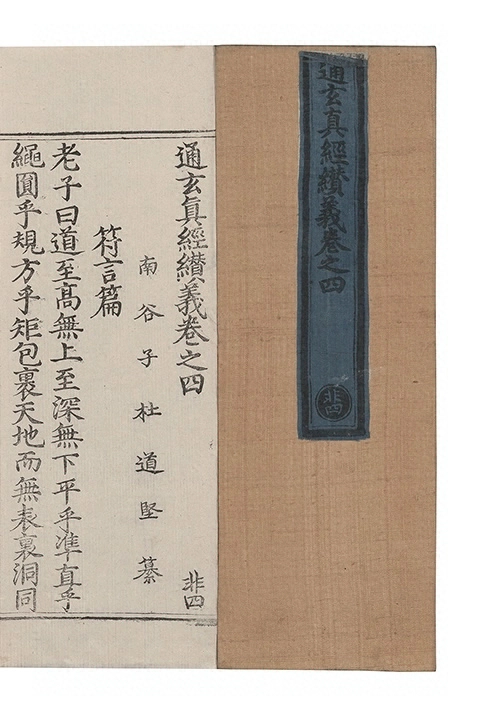 通玄真經纉義卷之四
非四
通玄真經纉義卷之四 非四
南谷子杜道堅纂
符言篇
老子曰道至髙無上至深無下平乎準直乎
繩圓乎規方乎矩包裹天地而無表裏洞同